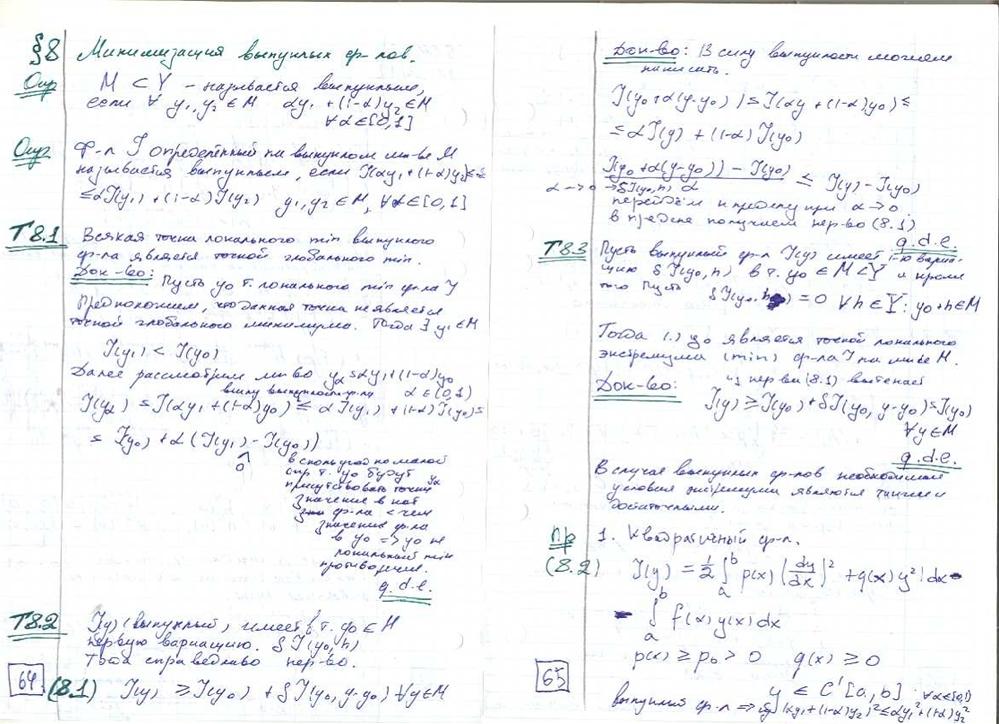 §8 Минимизация выпуклых ф-лов.
Опр M ⊂ Y – называется выпуклым,
если ∀ y₁, y₂ ∈ M αy₁ + (1-α)y₂ ∈ M
∀α∈[0,1]
Опр Ф-л J определённый на выпуклом мн-ве M
называется выпуклым, если J(αy₁ + (1-α)y₂) ≤
≤ αJ(y₁) + (1-α)J(y₂) y₁, y₂ ∈ M, ∀α∈[0,1]
T8.1 Всякая точка локального min выпуклого
ф-ла является точкой глобального min.
Док-во: Пусть y₀ т. локального min ф-ла J
Предположим, что данная точка не является
точкой глобального минимума. Тогда ∃ y₁∈M
J(y₁) < J(y₀)
Далее рассмотрим мн-во yα = αy₁ + (1-α)y₀
ввиду выпуклости ф-ла α∈(0,1)
J(yα) = J(αy₁ + (1-α)y₀) ≤ αJ(y₁) + (1-α)J(y₀) =
= J(y₀) + α(J(y₁) - J(y₀))
^
0
в сколь угодно малой
окр т. y₀ будут
присутствовать точки yα
значение в кот
ф-ла < чем
значение ф-ла
в y₀ => y₀ не
локальный min
противоречие.
q.d.e.
T8.2 J(y) (выпуклый), имеет в т. y₀∈M
первую вариацию. δJ(y₀, h)
Тогда справедливо нер-во.
64 (8.1) J(y) ≥ J(y₀) + δJ(y₀, y-y₀) ∀y∈M
Док-во: В силу выпуклости можем
написать.
J(y₀+α(y-y₀)) = J(αy + (1-α)y₀) ≤
≤ αJ(y) + (1-α)J(y₀)
J(y₀ + α(y-y₀)) - J(y₀) ≤ J(y) - J(y₀)
α→0 → δJ(y₀, h) α
перейдём к пределу при α→0,
в пределе получаем нер-во (8.1)
q.d.e.
T8.3 Пусть выпуклый ф-л J(y) имеет 1-ю вариа-
цию δJ(y₀, h) в т. y₀∈M⊂Y и кроме
того пусть δJ(y₀, h) = 0 ∀h∈Y: y₀+h∈M
Тогда (.) y₀ является точкой локального
экстремума (min) ф-ла J на мн-ве M.
Док-во: из нер-ва (8.1) вытекает
J(y) ≥ J(y₀) + δJ(y₀, y-y₀) = J(y₀)
∀y∈M
q.d.e.
В случае выпуклых ф-лов необходимые
условия экстремума являются также и
достаточными.
Пр 1. Квадратичный ф-л.
(8.2) J(y) = 1/2 ∫ₐᵇ p(x) (dy/dx)² + q(x)y²) dx -
- ∫ₐᵇ f(x)y(x)dx
p(x) ≥ p₀ > 0 q(x) ≥ 0
65 y ∈ C¹[a,b] ∀α∈[0,1]
выпуклый ф-л => (αy₁ + (1-α)y₂)² ≤ αy₁² + (1-α)y₂²